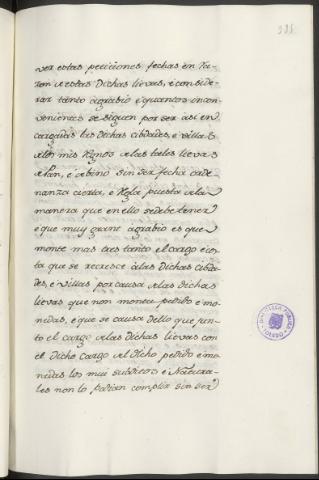 ver estas peticiones fechas en Ra-
zon de estas Dichas lievas, é conside-
rar tanto agrabio é quantos incon-
venientes se siguen por ser asi en
cargadas las dichas cibdades, é villas
de los mis Regnos de las tales lievas
de Pan, é de bino sin ser fecha orde-
nanza cierta, é Regla puesta de la
manera que en ello se debe tener
é que muy grant agrabio es que
monte mas tres tanto el cargo é cos
ta que se recresce á las Dichas cibda-
des, é villas por causa de las dichas
lievas que non monta pedido é mo-
nedas, é que se causa dello que jun-
to el cargo de las dichas lievas con
el Dicho cargo del Dicho pedido é mo
nedas los mis subditos é Natura-
les non lo podian complir sin ser